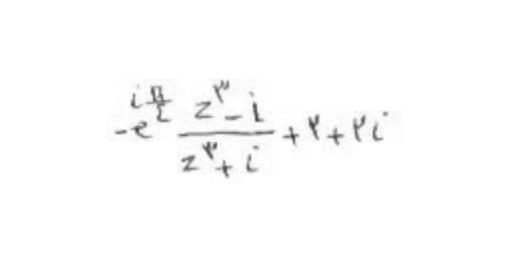 -e^{iπ/} (z^۳-i)/(z^۳+i) +۲+۲i